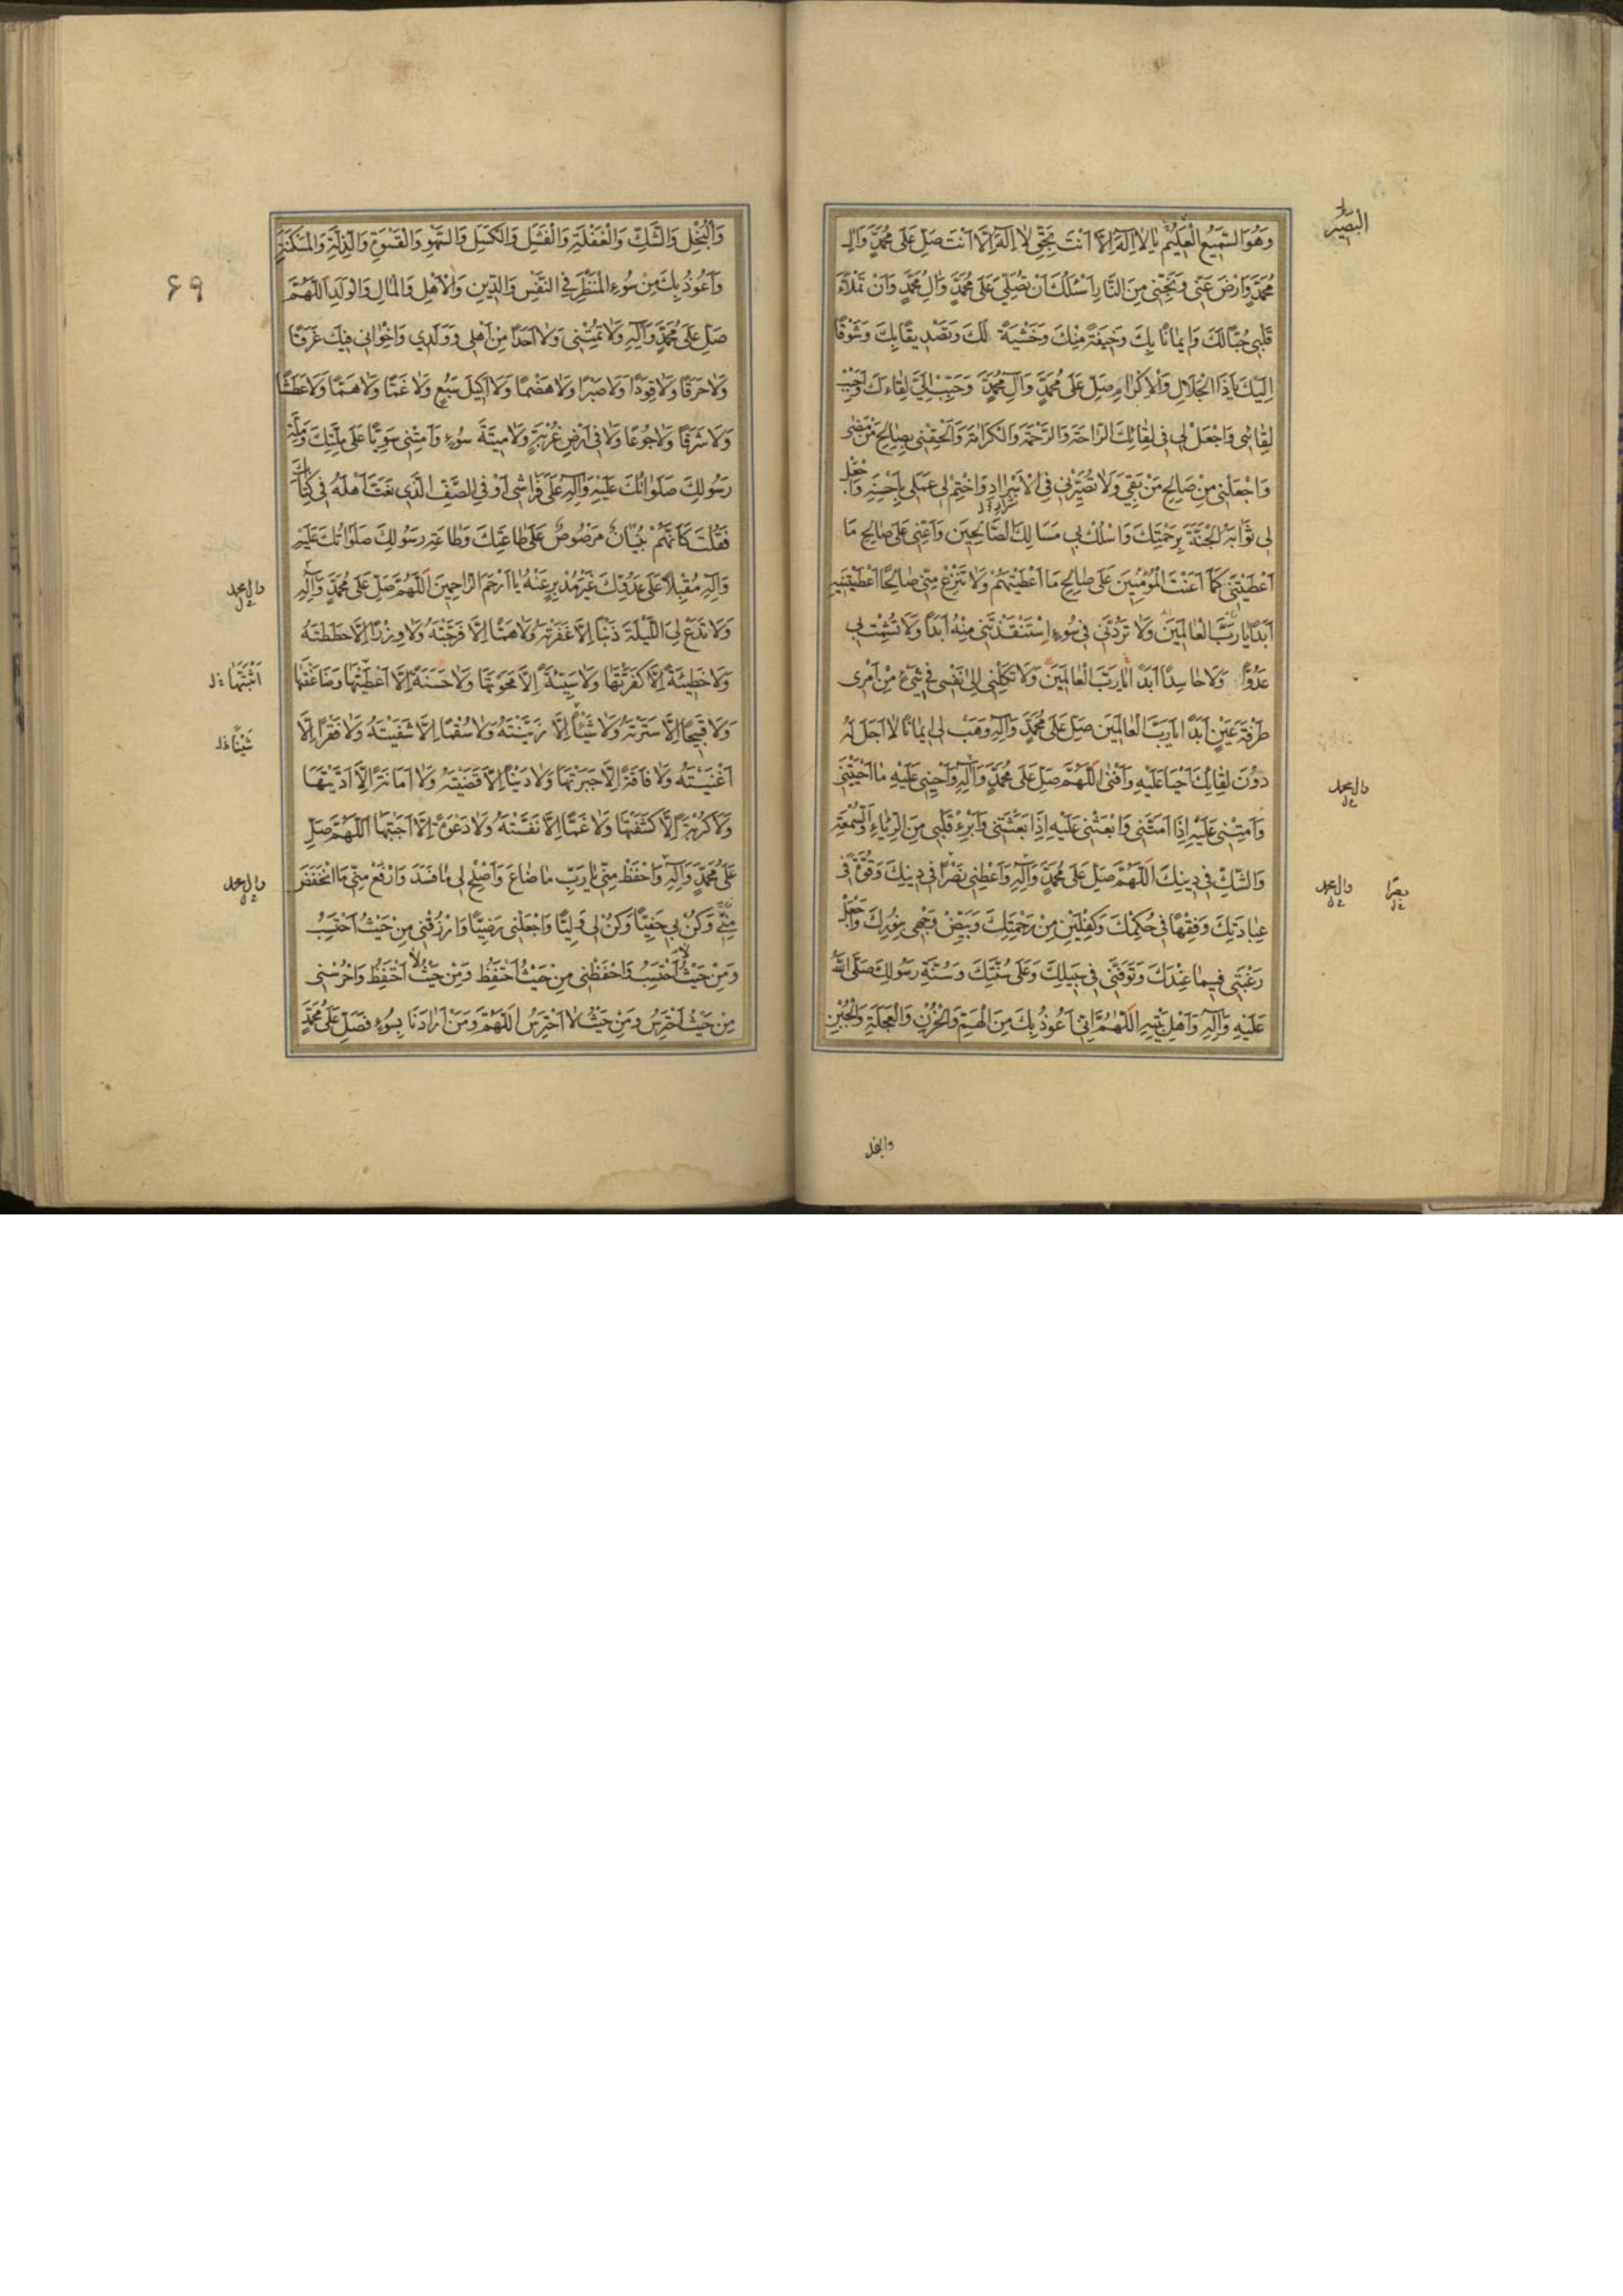 وَهُوَ السَّمِيعُ الْعَلِيمُ يَا لَا اِلٰهَ اِلَّا اَنْتَ بِحَقِّ لَا اِلٰهَ اِلَّا اَنْتَ صَلِّ عَلٰى مُحَمَّدٍ وَآلِ
البَصِيرُ
مُحَمَّدٍ وَارْضَ عَنِّى وَنَجِّنِى مِنَ النَّارِ اَسْئَلُكَ اَنْ تُصَلِّىَ عَلٰى مُحَمَّدٍ وَآلِ مُحَمَّدٍ وَاَنْ تَمْلَأَ
قَلْبِى حُبًّا لَكَ وَاِيمَانًا بِكَ وَخِيفَةً مِنْكَ وَخَشْيَةً لَكَ وَتَصْدِيقًا بِكَ وَشَوْقًا
اِلَيْكَ يَا ذَا الْجَلَالِ وَالْاِكْرَامِ صَلِّ عَلٰى مُحَمَّدٍ وَآلِ مُحَمَّدٍ وَحَبِّبْ اِلَىَّ لِقَاءَكَ وَاَحْبِبْ
لِقَائِى وَاجْعَلْ لِى فِى لِقَائِكَ الرَّاحَةَ وَالرَّحْمَةَ وَالْكَرَامَةَ وَاَلْحِقْنِى بِصَالِحِ مَنْ مَضٰى
وَاجْعَلْنِى مِنْ صَالِحِ مَنْ بَقِىَ وَلَا تُصَيِّرْنِى فِى الْاَشْرَارِ وَاخْتِمْ لِى عَمَلِى بِاَحْسَنِهِ وَاجْعَلْ
لِى ثَوَابَهُ الْجَنَّةَ بِرَحْمَتِكَ وَاسْلُكْ بِى مَسَالِكَ الصَّالِحِينَ وَاَعِنِّى عَلٰى صَالِحِ مَا
اَعْطَيْتَنِى كَمَا اَعَنْتَ الْمُؤْمِنِينَ عَلٰى صَالِحِ مَا اَعْطَيْتَهُمْ وَلَا تَنْزِعْ مِنِّى صَالِحًا اَعْطَيْتَنِيهِ
اَبَدًا يَا رَبَّ الْعَالَمِينَ وَلَا تَرُدَّنِى فِى سُوءٍ اِسْتَنْقَذْتَنِى مِنْهُ اَبَدًا وَلَا تُشْمِتْ بِى
عَدُوًّا وَلَا حَاسِدًا اَبَدًا يَا رَبَّ الْعَالَمِينَ وَلَا تَكِلْنِى اِلٰى نَفْسِى فِى شَىْءٍ مِنْ اَمْرِى
طَرْفَةَ عَيْنٍ اَبَدًا يَا رَبَّ الْعَالَمِينَ صَلِّ عَلٰى مُحَمَّدٍ وَآلِهِ وَهَبْ لِى اِيمَانًا لَا اَجَلَ لَهُ
دُونَ لِقَائِكَ اَحْيَا عَلَيْهِ وَاَفْنٰى اَللّٰهُمَّ صَلِّ عَلٰى مُحَمَّدٍ وَآلِهِ وَاَحْيِنِى عَلَيْهِ مَا اَحْيَيْتَنِى
وال محمد
وَاَمِتْنِى عَلَيْهِ اِذَا اَمَتَّنِى وَابْعَثْنِى عَلَيْهِ اِذَا بَعَثْتَنِى وَاَبْرِءْ قَلْبِى مِنَ الرِّيَاءِ وَالسُّمْعَةِ
وَالشَّكِّ فِى دِينِكَ اَللّٰهُمَّ صَلِّ عَلٰى مُحَمَّدٍ وَآلِهِ وَاَعْطِنِى نَصْرًا فِى دِينِكَ وَقُوَّةً فِى
وال محمد
بصرًا
عِبَادَتِكَ وَفِقْهًا فِى حُكْمِكَ وَكِفْلَيْنِ مِنْ رَحْمَتِكَ وَبَيِّضْ وَجْهِى بِنُورِكَ وَاجْعَلْ
رَغْبَتِى فِيمَا عِنْدَكَ وَتَوَفَّنِى فِى سَبِيلِكَ وَعَلٰى سُنَّتِكَ وَسُنَّةِ رَسُولِكَ صَلَّى اللّٰهُ
عَلَيْهِ وَآلِهِ وَاَهْلِ بَيْتِهِ اَللّٰهُمَّ اِنِّى اَعُوذُ بِكَ مِنَ الْهَمِّ وَالْحُزْنِ وَالْعَجَلَةِ وَالْجُبْنِ
والبخل
وَالْبُخْلِ وَالشَّكِّ وَالْغَفْلَةِ وَالْفَشَلِ وَالْكَسَلِ وَالسَّهْوِ وَالْقَسْوَةِ وَالذِّلَّةِ وَالْمَسْكَنَةِ
وَاَعُوذُ بِكَ مِنْ سُوءِ الْمَنْظَرِ فِى النَّفْسِ وَالدِّينِ وَالْاَهْلِ وَالْمَالِ وَالْوَلَدِ اَللّٰهُمَّ
۶۹
صَلِّ عَلٰى مُحَمَّدٍ وَآلِهِ وَلَا تُمِتْنِى وَلَا اَحَدًا مِنْ اَهْلِى وَوَلَدِى وَاِخْوَانِى فِيكَ غَرَقًا
وَلَا حَرَقًا وَلَا قَوَدًا وَلَا صَبْرًا وَلَا هَضْمًا وَلَا اَكِيلَ سَبُعٍ وَلَا غَمًّا وَلَا هَمًّا وَلَا عَطَشًا
وَلَا شَرَقًا وَلَا جُوعًا وَلَا فِى اَرْضِ غُرْبَةٍ وَلَا مِيتَةَ سُوءٍ وَاَمِتْنِى سَوِيًّا عَلٰى مِلَّتِكَ وَمِلَّةِ
رَسُولِكَ صَلَوَاتُكَ عَلَيْهِ وَآلِهِ عَلٰى فِرَاشِى اَوْ فِى الصَّفِّ الَّذِى نَعَتَّ اَهْلَهُ فِى كِتَابِكَ
فَقُلْتَ كَاَنَّهُمْ بُنْيَانٌ مَرْصُوصٌ عَلٰى طَاعَتِكَ وَطَاعَةِ رَسُولِكَ صَلَوَاتُكَ عَلَيْهِ
وَآلِهِ مُقْبِلًا عَلٰى عَدُوِّكَ غَيْرَ مُدْبِرٍ عَنْهُ يَا اَرْحَمَ الرَّاحِمِينَ اَللّٰهُمَّ صَلِّ عَلٰى مُحَمَّدٍ وَآلِهِ
وال محمد
وَلَا تَدَعْ لِىَ اللَّيْلَةَ ذَنْبًا اِلَّا غَفَرْتَهُ وَلَا هَمًّا اِلَّا فَرَّجْتَهُ وَلَا وِزْرًا اِلَّا حَطَطْتَهُ
وَلَا خَطِيئَةً اِلَّا كَفَّرْتَهَا وَلَا سَيِّئَةً اِلَّا مَحَوْتَهَا وَلَا حَسَنَةً اِلَّا اَعْطَيْتَهَا وَضَاعَفْتَهَا
اَثْبَتَّهَا
وَلَا قَبِيحًا اِلَّا سَتَرْتَهُ وَلَا شَيْئًا اِلَّا زَيَّنْتَهُ وَلَا سُقْمًا اِلَّا شَفَيْتَهُ وَلَا فَقْرًا اِلَّا
شَيْنًا
اَغْنَيْتَهُ وَلَا فَاقَةً اِلَّا جَبَرْتَهَا وَلَا دَيْنًا اِلَّا قَضَيْتَهُ وَلَا اَمَانَةً اِلَّا اَدَّيْتَهَا
وَلَا كُرْبَةً اِلَّا كَشَفْتَهَا وَلَا غَمًّا اِلَّا نَفَّسْتَهُ وَلَا دَعْوَةً اِلَّا اَجَبْتَهَا اَللّٰهُمَّ صَلِّ
عَلٰى مُحَمَّدٍ وَآلِهِ وَاحْفَظْ مِنِّى يَا رَبِّ مَا ضَاعَ وَاَصْلِحْ لِى مَا فَسَدَ وَارْفَعْ مِنِّى مَا انْخَفَضَ
وال محمد
مِنِّى وَكُنْ بِى حَفِيًّا وَكُنْ لِى وَلِيًّا وَاجْعَلْنِى رَضِيًّا وَارْزُقْنِى مِنْ حَيْثُ اَحْتَسِبُ
وَمِنْ حَيْثُ لَا اَحْتَسِبُ وَاحْفَظْنِى مِنْ حَيْثُ اَحْتَفِظُ وَمِنْ حَيْثُ لَا اَحْتَفِظُ وَاحْرُسْنِى
مِنْ حَيْثُ اَحْتَرِسُ وَمِنْ حَيْثُ لَا اَحْتَرِسُ اَللّٰهُمَّ وَمَنْ اَرَادَنَا بِسُوءٍ فَصَلِّ عَلٰى مُحَمَّدٍ